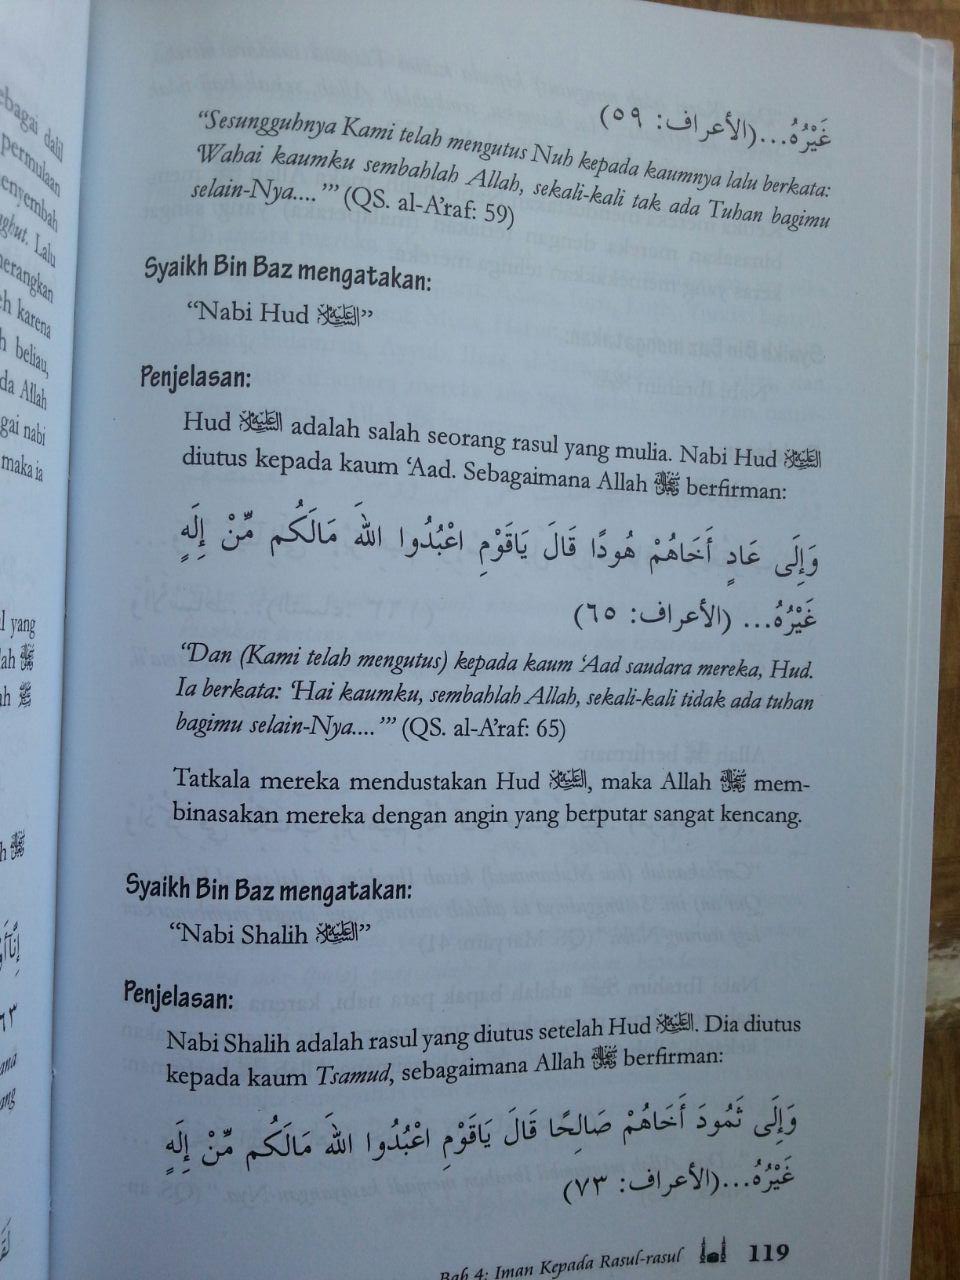 ebagai dalil
permulaan
enyembah
ghut. Lalu
nerangkan
eh karena
h beliau,
da Allah
gai nabi
maka ia
l yang
lah ﷻ
ah ﷻ
h ﷺ
ana
ang
غَيْرُهُ...(الأعراف: ٥٩)
“Sesungguhnya Kami telah mengutus Nuh kepada kaumnya lalu berkata:
‘Wahai kaumku sembahlah Allah, sekali-kali tak ada Tuhan bagimu
selain-Nya....’” (QS. al-A’raf: 59)
Syaikh Bin Baz mengatakan:
“Nabi Hud عليه السلام”
Penjelasan:
Hud عليه السلام adalah salah seorang rasul yang mulia. Nabi Hud عليه السلام
diutus kepada kaum ‘Aad. Sebagaimana Allah ﷻ berfirman:
وَإِلَى عَادٍ أَخَاهُمْ هُودًا قَالَ يَاقَوْمِ اعْبُدُوا اللهَ مَالَكُم مِّنْ إِلَهٍ
غَيْرُهُ... (الأعراف: ٦٥)
“Dan (Kami telah mengutus) kepada kaum ‘Aad saudara mereka, Hud.
Ia berkata: ‘Hai kaumku, sembahlah Allah, sekali-kali tidak ada tuhan
bagimu selain-Nya....’” (QS. al-A’raf: 65)
Tatkala mereka mendustakan Hud عليه السلام, maka Allah ﷻ mem-
binasakan mereka dengan angin yang berputar sangat kencang.
Syaikh Bin Baz mengatakan:
“Nabi Shalih عليه السلام”
Penjelasan:
Nabi Shalih adalah rasul yang diutus setelah Hud عليه السلام. Dia diutus
kepada kaum Tsamud, sebagaimana Allah ﷻ berfirman:
وَإِلَى ثَمُودَ أَخَاهُمْ صَالِحًا قَالَ يَاقَوْمِ اعْبُدُوا اللهَ مَالَكُم مِّنْ إِلَهٍ
غَيْرُهُ...(الأعراف: ٧٣)
Bab 4: Iman Kepada Rasul-rasul 119